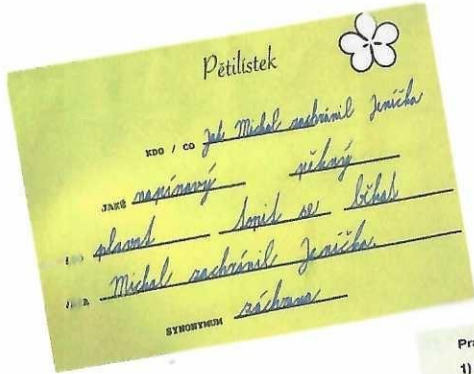 Pětilístek
KDO / CO Jak Michal zachránil Jeníčka
JAKÉ napínavý pěkný
plavat smít se běhat
Michal zachránil Jeníčka
SYNONYMUM záchrana
Pr
1)